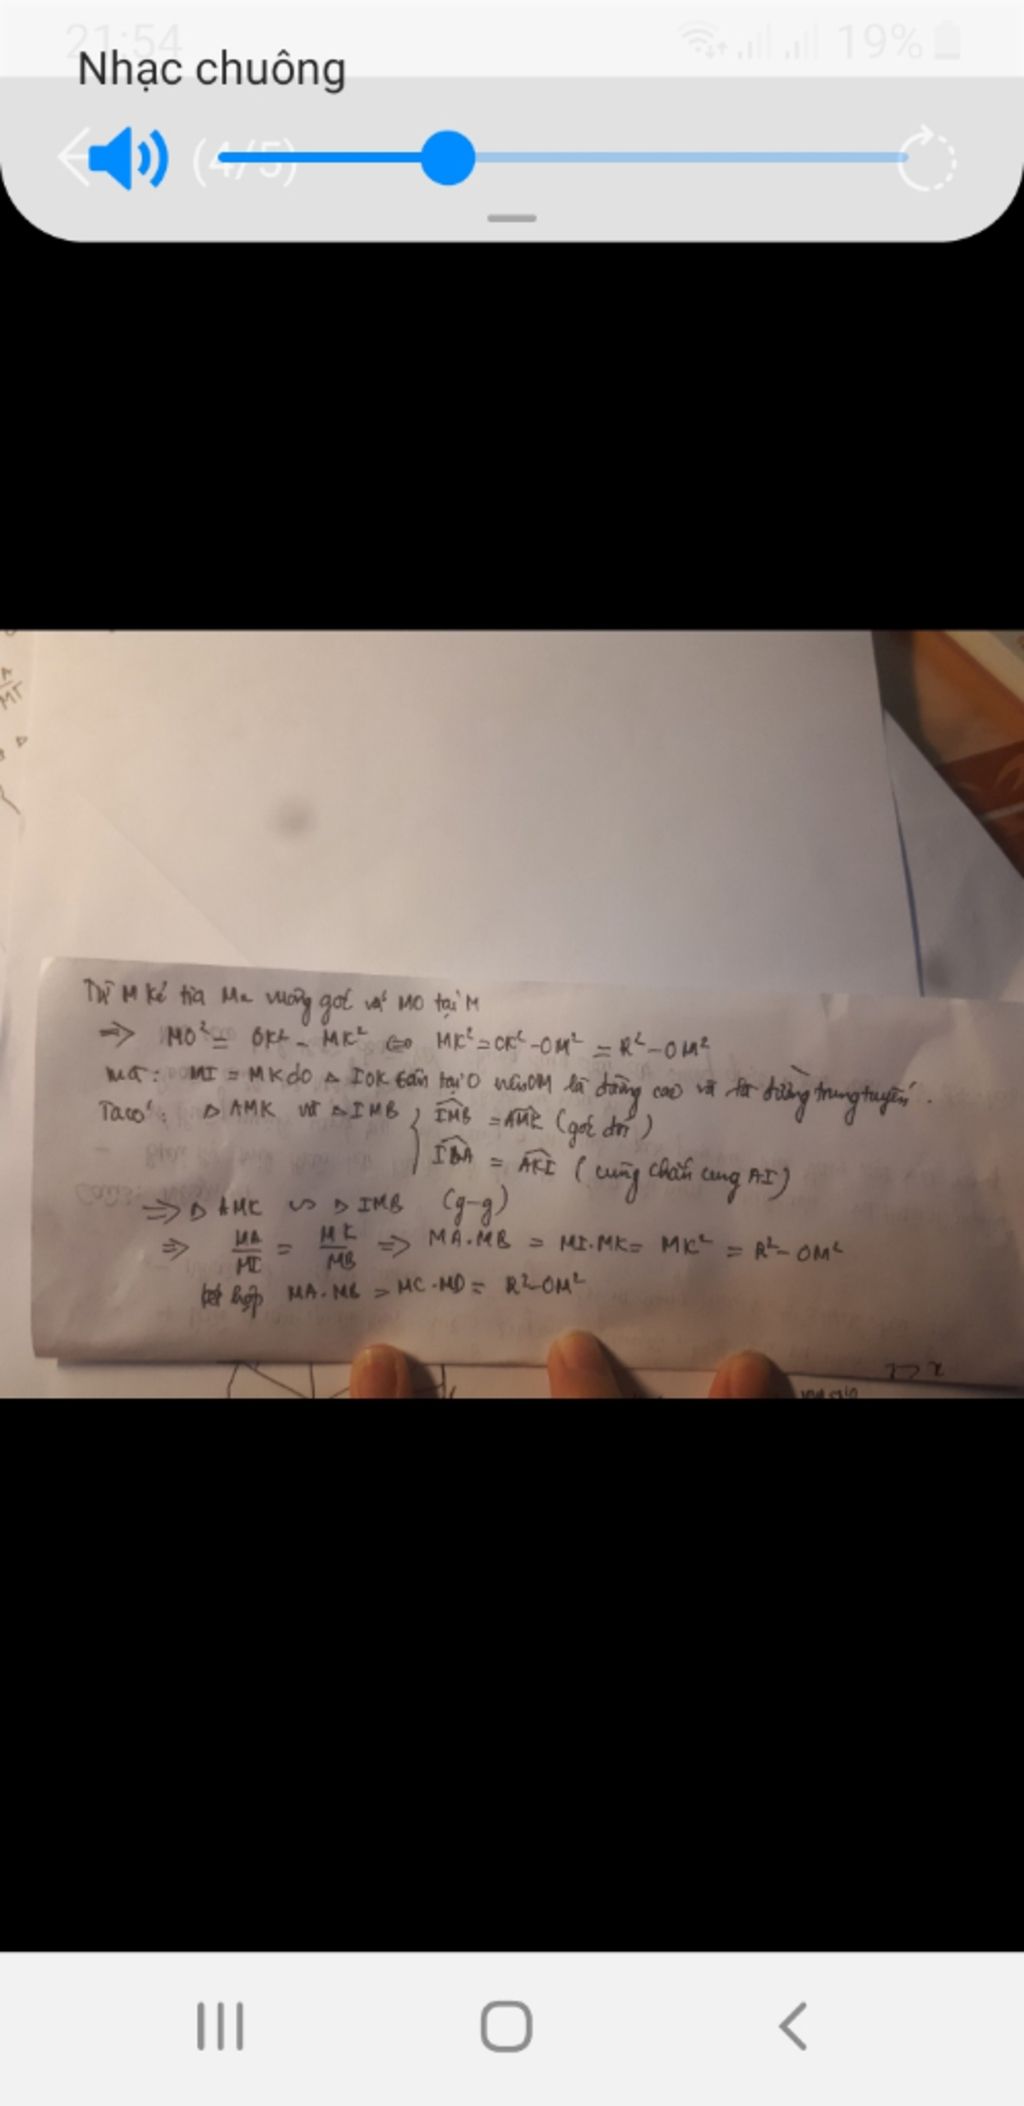 21:54 19%
Nhạc chuông
(4/5)
A
MT
Từ M kẻ tia Mx vuông góc với MO tại M
=> MO² = OK² - MK² <=> MK² = OK² - OM² = R² - OM²
mà: MI = MK do Δ IOK cân tại O nên OM là đường cao và là đường trung tuyến.
Ta có: Δ AMK và Δ IMB { IMB = AMK (góc đối)
IBA = AKI (cùng chắn cung AI)
=> Δ AMK ∽ Δ IMB (g-g)
=> MA/MI = MK/MB => MA.MB = MI.MK = MK² = R² - OM²
kết hợp MA.MB = MC.MD = R² - OM²